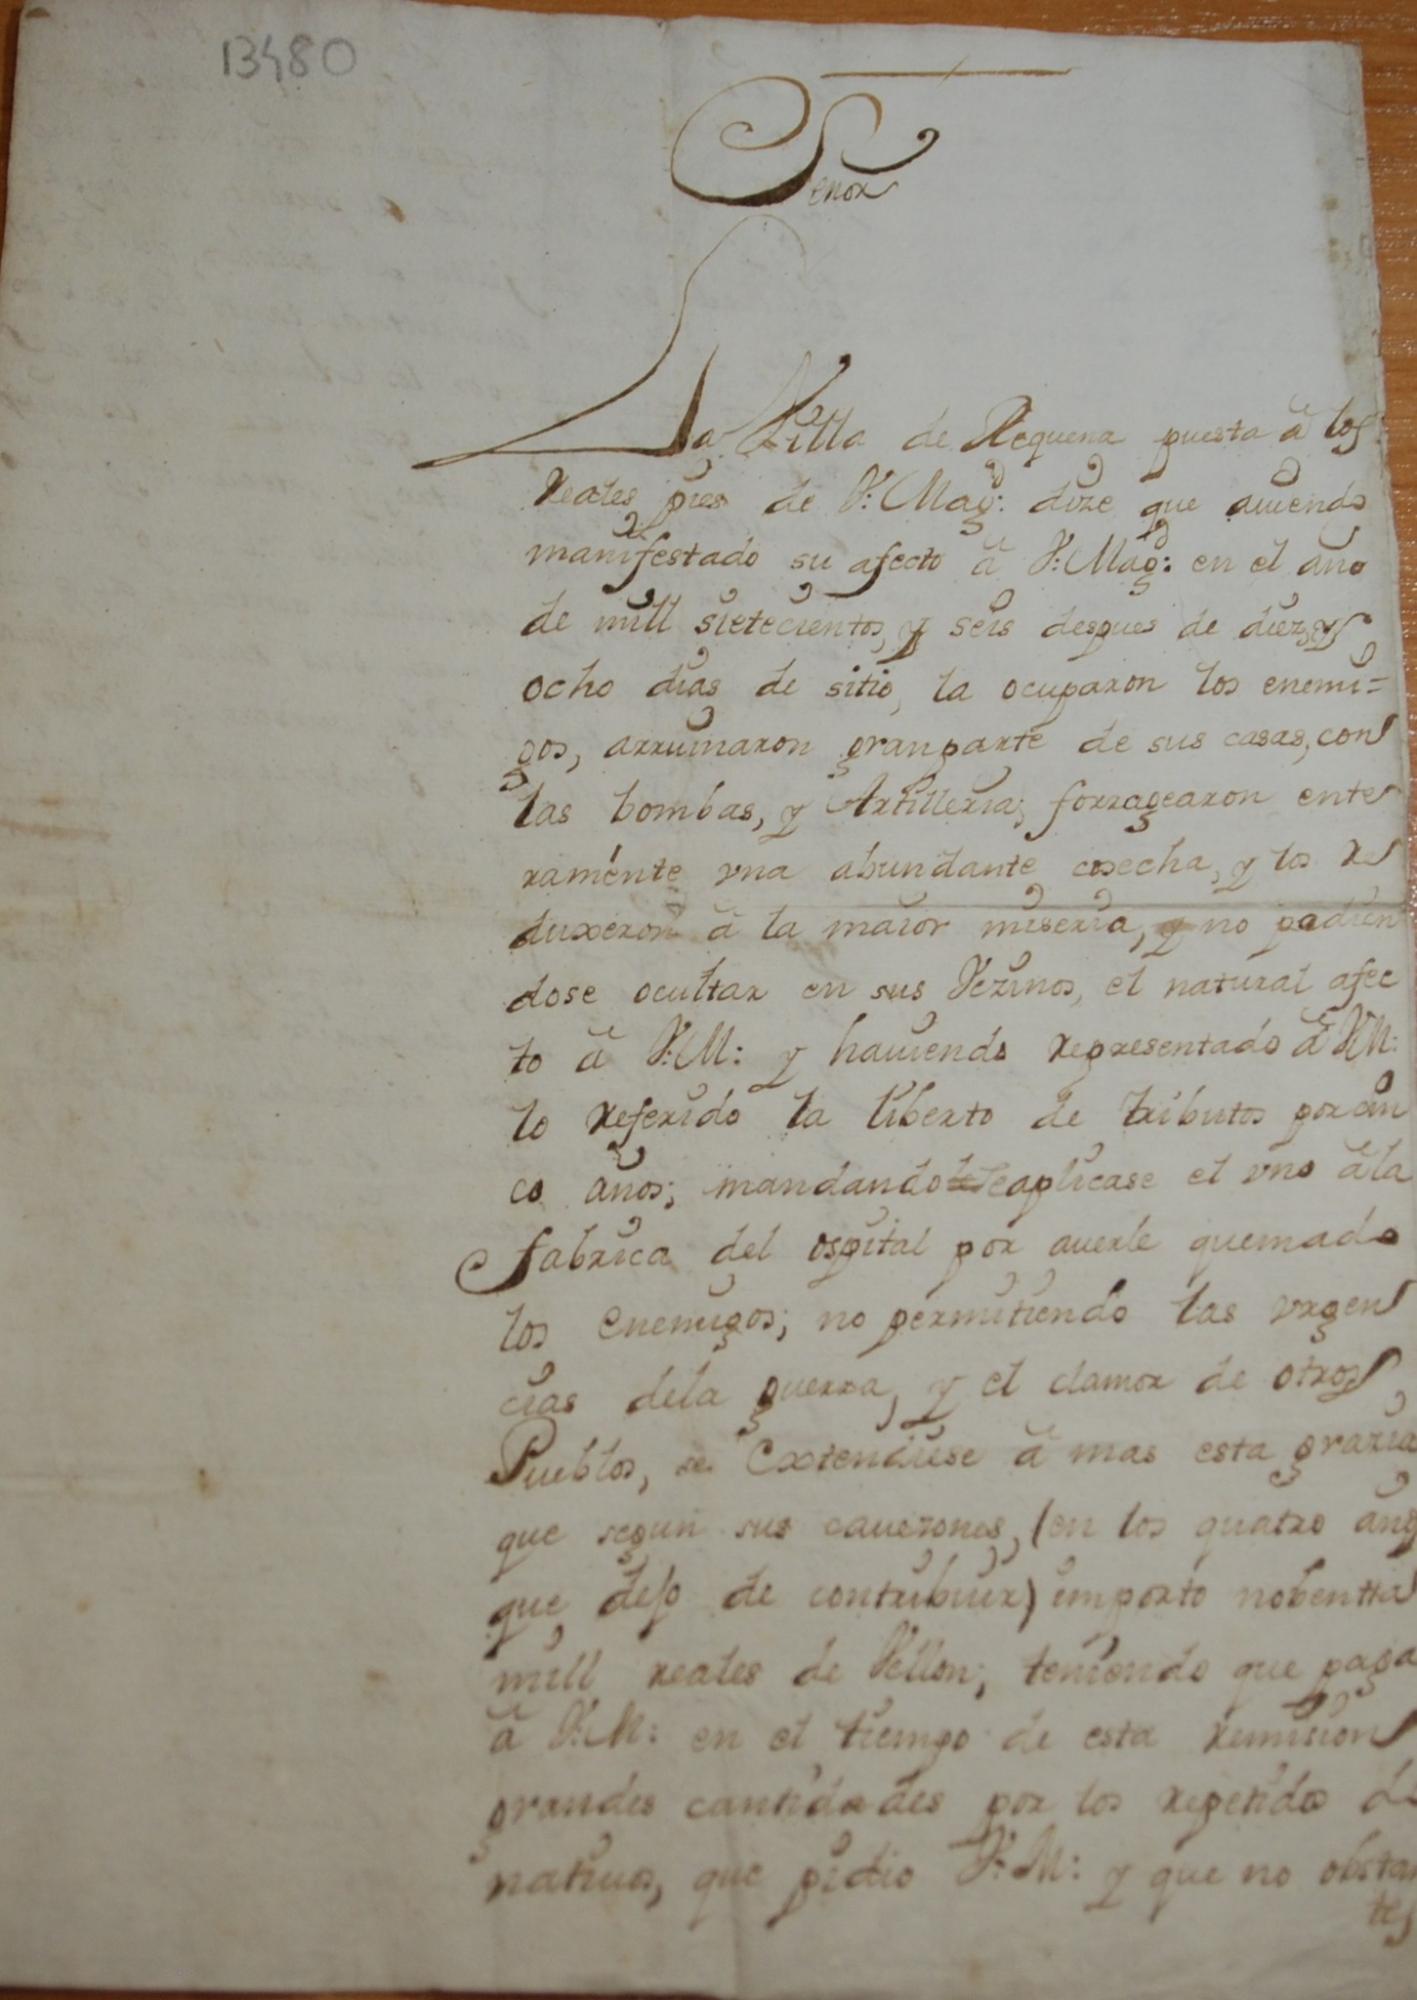 13480
Señor
La Villa de Requena puesta â los
Reales pies de V: Mag.d: dize que auiendo
manifestado su afecto â V: Mag.d: en el año
de mill sietecientos, y seis despues de diez, y
ocho dias de sitio, la ocuparon los enemi=
gos, arruinaron gran parte de sus casas, con
las bombas, y Artilleria; forragearon ente
ramente vna abundante cosecha, y los re
duxeron â la maior miseria, y no pudien
dose ocultar en sus Vezinos, el natural afec
to â V: M: y hauiendo representado â V M:
lo referido la liberto de tributos por cin
co años; mandando se aplicase el vno â la
fabrica del ospital por auerle quemado
los enemigos; no permitiendo las vrgen
cias dela guerra, y el clamor de otros
Pueblos, se extendiese â mas esta grazia
que segun sus cauezones, (en los quatro años
que dejo de contribuir) importo nobentta
mill reales de Vellon; teniendo que paga
â V: M: en el tiempo de esta remision
grandes cantidades por los repetidos do
natiuos, que pidio V: M: y que no obstan
tes